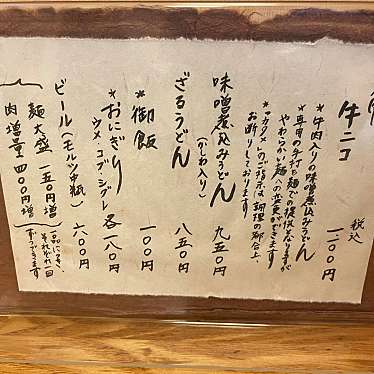 牛ニコ 税込 一一〇〇円
*牛肉入りの味噌煮込みうどん
*専用の手打ち麺での提供となりますが
やわらかい麺への変更ができます
*"カタメ"のご指示は調理の都合上、
お断りしております
味噌煮込みうどん 九五〇円
(かしわ入り)
ざるうどん 八五〇円
*御飯 一〇〇円
*おにぎり 各一八〇円
ウメ・コブ・シグレ
ビール(モルツ中瓶) 六〇〇円
麺大盛 一五〇円増
肉増量 四〇〇円増
一品につき、
それぞれ一回
ずつできます